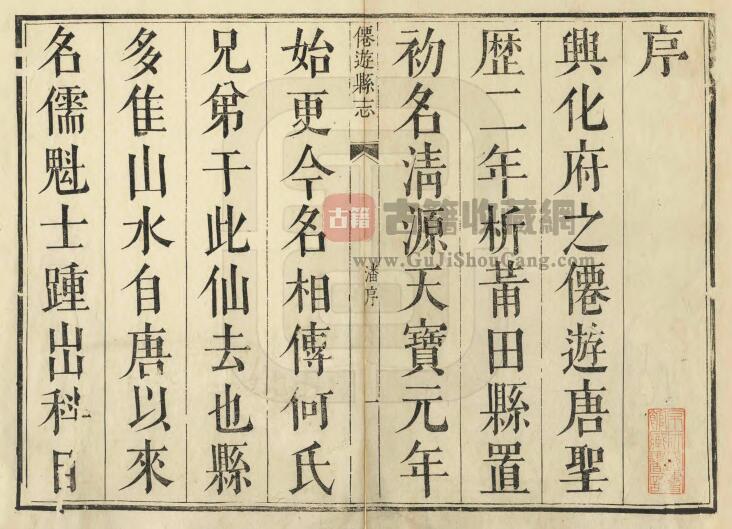 序
興化府之僊遊唐聖
歴二年析莆田縣置
初名淸源天寶元年
僊遊縣志
潘序
一
始更今名相傳何氏
兄弟于此仙去也縣
多佳山水自唐以來
名儒魁士踵出科目
古籍
古籍收藏網
www.GuJiShouCang.com